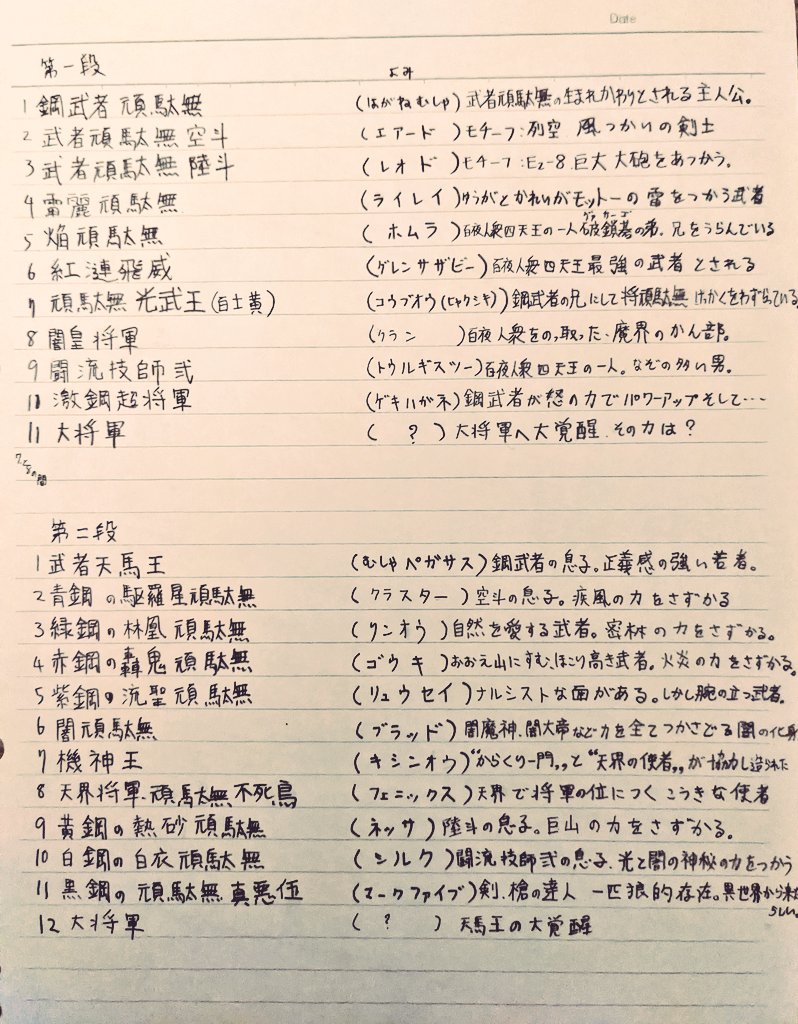 Date
第一段 よみ
1 鋼武者 頑駄無 (はがねむしゃ) 武者頑駄無の生まれかわりとされる主人公。
2 武者頑駄無 空斗 (エアード) モチーフ:列空 風つかいの剣士
3 武者頑駄無 陸斗 (レオド) モチーフ:Ez-8 巨大大砲をあつかう。
4 雷麗頑駄無 (ライレイ) ゆうがとかれいがモットーの雷をつかう武者
5 焔頑駄無 (ホムラ) 百夜人衆四天王の一人破鎖碁の弟。兄をうらんでいる
6 紅漣飛威 (グレンサザビー) 百夜人衆四天王最強の武者とされる
7 頑駄無 光武王(白士黄) (コウブオウ(ヒャクシキ)) 鋼武者の兄にして将頑駄無 けかくをわずらっている
8 闇皇将軍 (クラン) 百夜人衆をのっ取った、魔界のかん部。
9 闘流技師弐 (トウルギスツー) 百夜人衆四天王の一人。なぞの多い男。
10 激鋼超将軍 (ゲキハガネ) 鋼武者が怒の力でパワーアップそして…
11 大将軍 (?) 大将軍へ大覚醒.その力は?
第二段
1 武者天馬王 (むしゃペガサス) 鋼武者の息子。正義感の強い若者。
2 青鋼の駆羅星頑駄無 (クラスター) 空斗の息子。疾風の力をさずかる
3 緑鋼の林凰頑駄無 (リンオウ) 自然を愛する武者。密林の力をさずかる。
4 赤鋼の轟鬼頑駄無 (ゴウキ) おおえ山にすむ、ほこり高き武者。火炎の力をさずかる。
5 紫鋼の流聖頑駄無 (リュウセイ) ナルシストな面がある。しかし腕の立つ武者。
6 闇頑駄無 (ブラッド) 闇魔神、闇大帝など力を全てつかさどる闇の化身
7 機神王 (キシンオウ) "からくり一門"と"天界の使者"が協力し造られた
8 天界将軍.頑駄無不死鳥 (フェニックス) 天界で将軍の位につくこうきな使者
9 黄鋼の熱砂頑駄無 (ネッサ) 陸斗の息子。巨山の力をさずかる。
10 白鋼の白衣頑駄無 (シルク) 闘流技師弐の息子.光と闇の神秘の力をつかう
11 黒鋼の頑駄無真悪伍 (マークファイブ) 剣、槍の達人 一匹狼的存在。異世界から来たらしい。
12 大将軍 (?) 天馬王の大覚醒